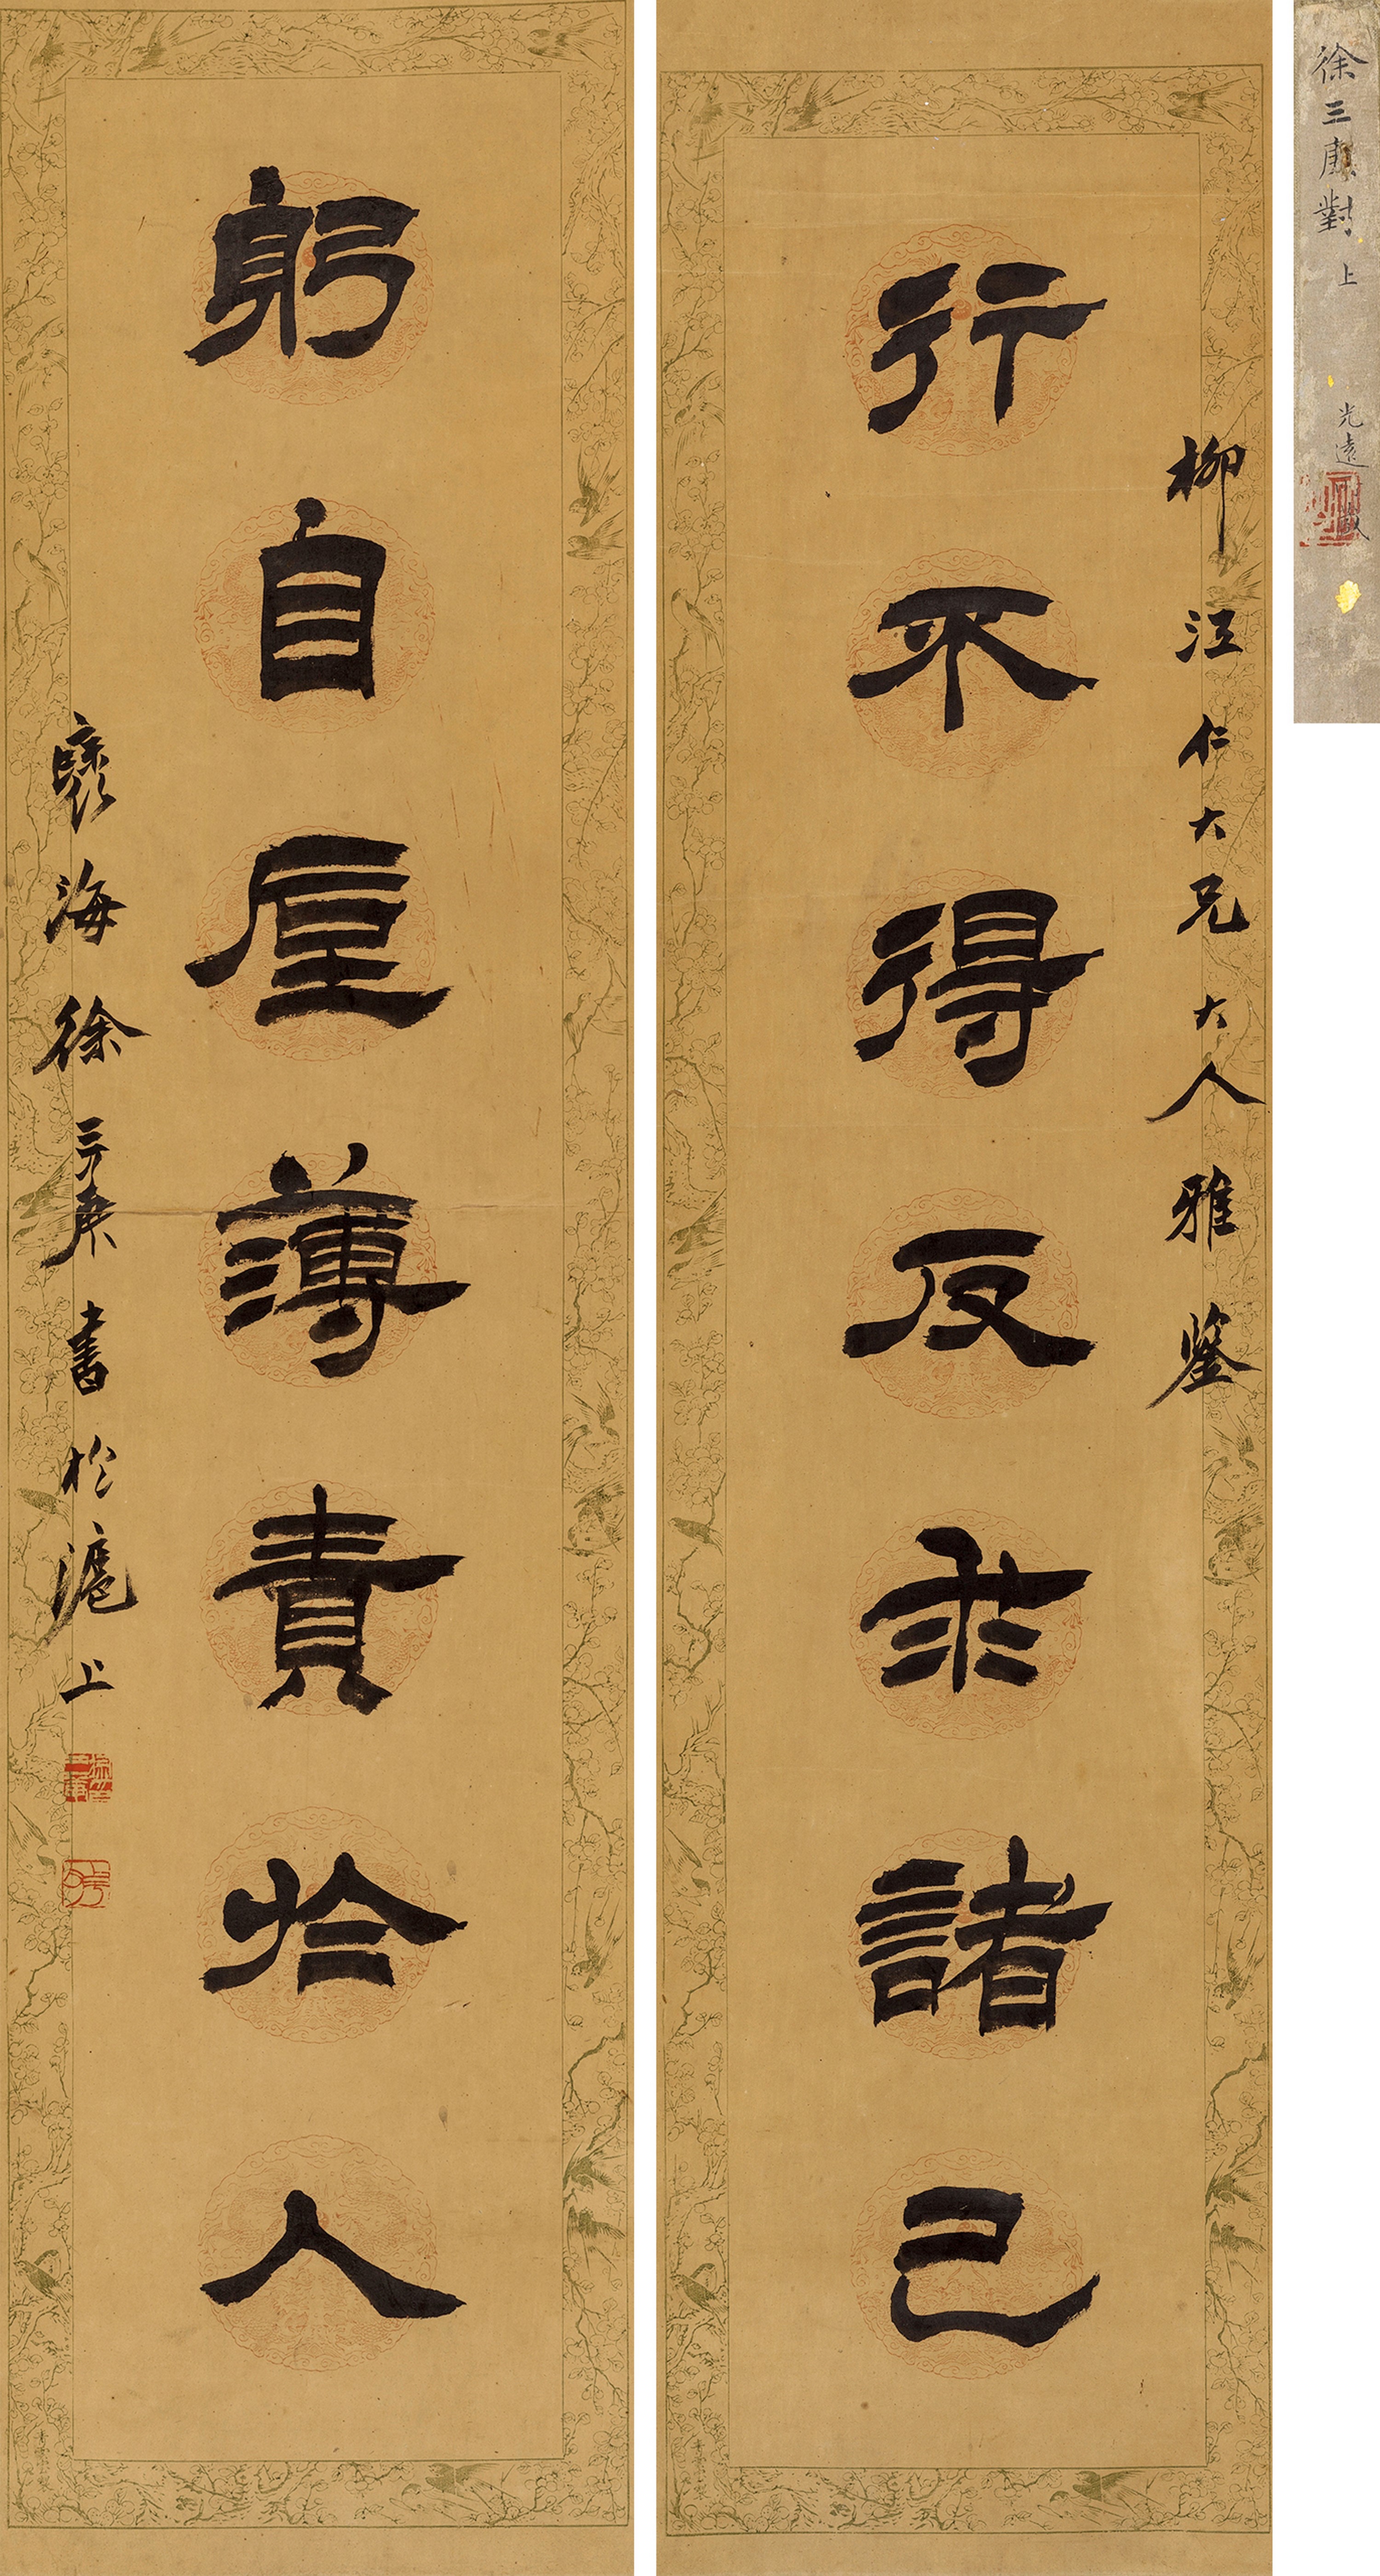 徐三庚對 上
光遠
柳江仁大兄大人雅鑒
行不得反求諸己
躬自厚薄責於人
褎海徐三庚書於滬上